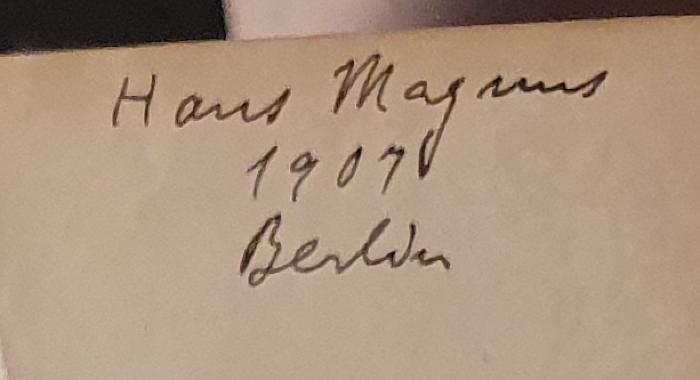 Hans Magnus
1907
Berlin